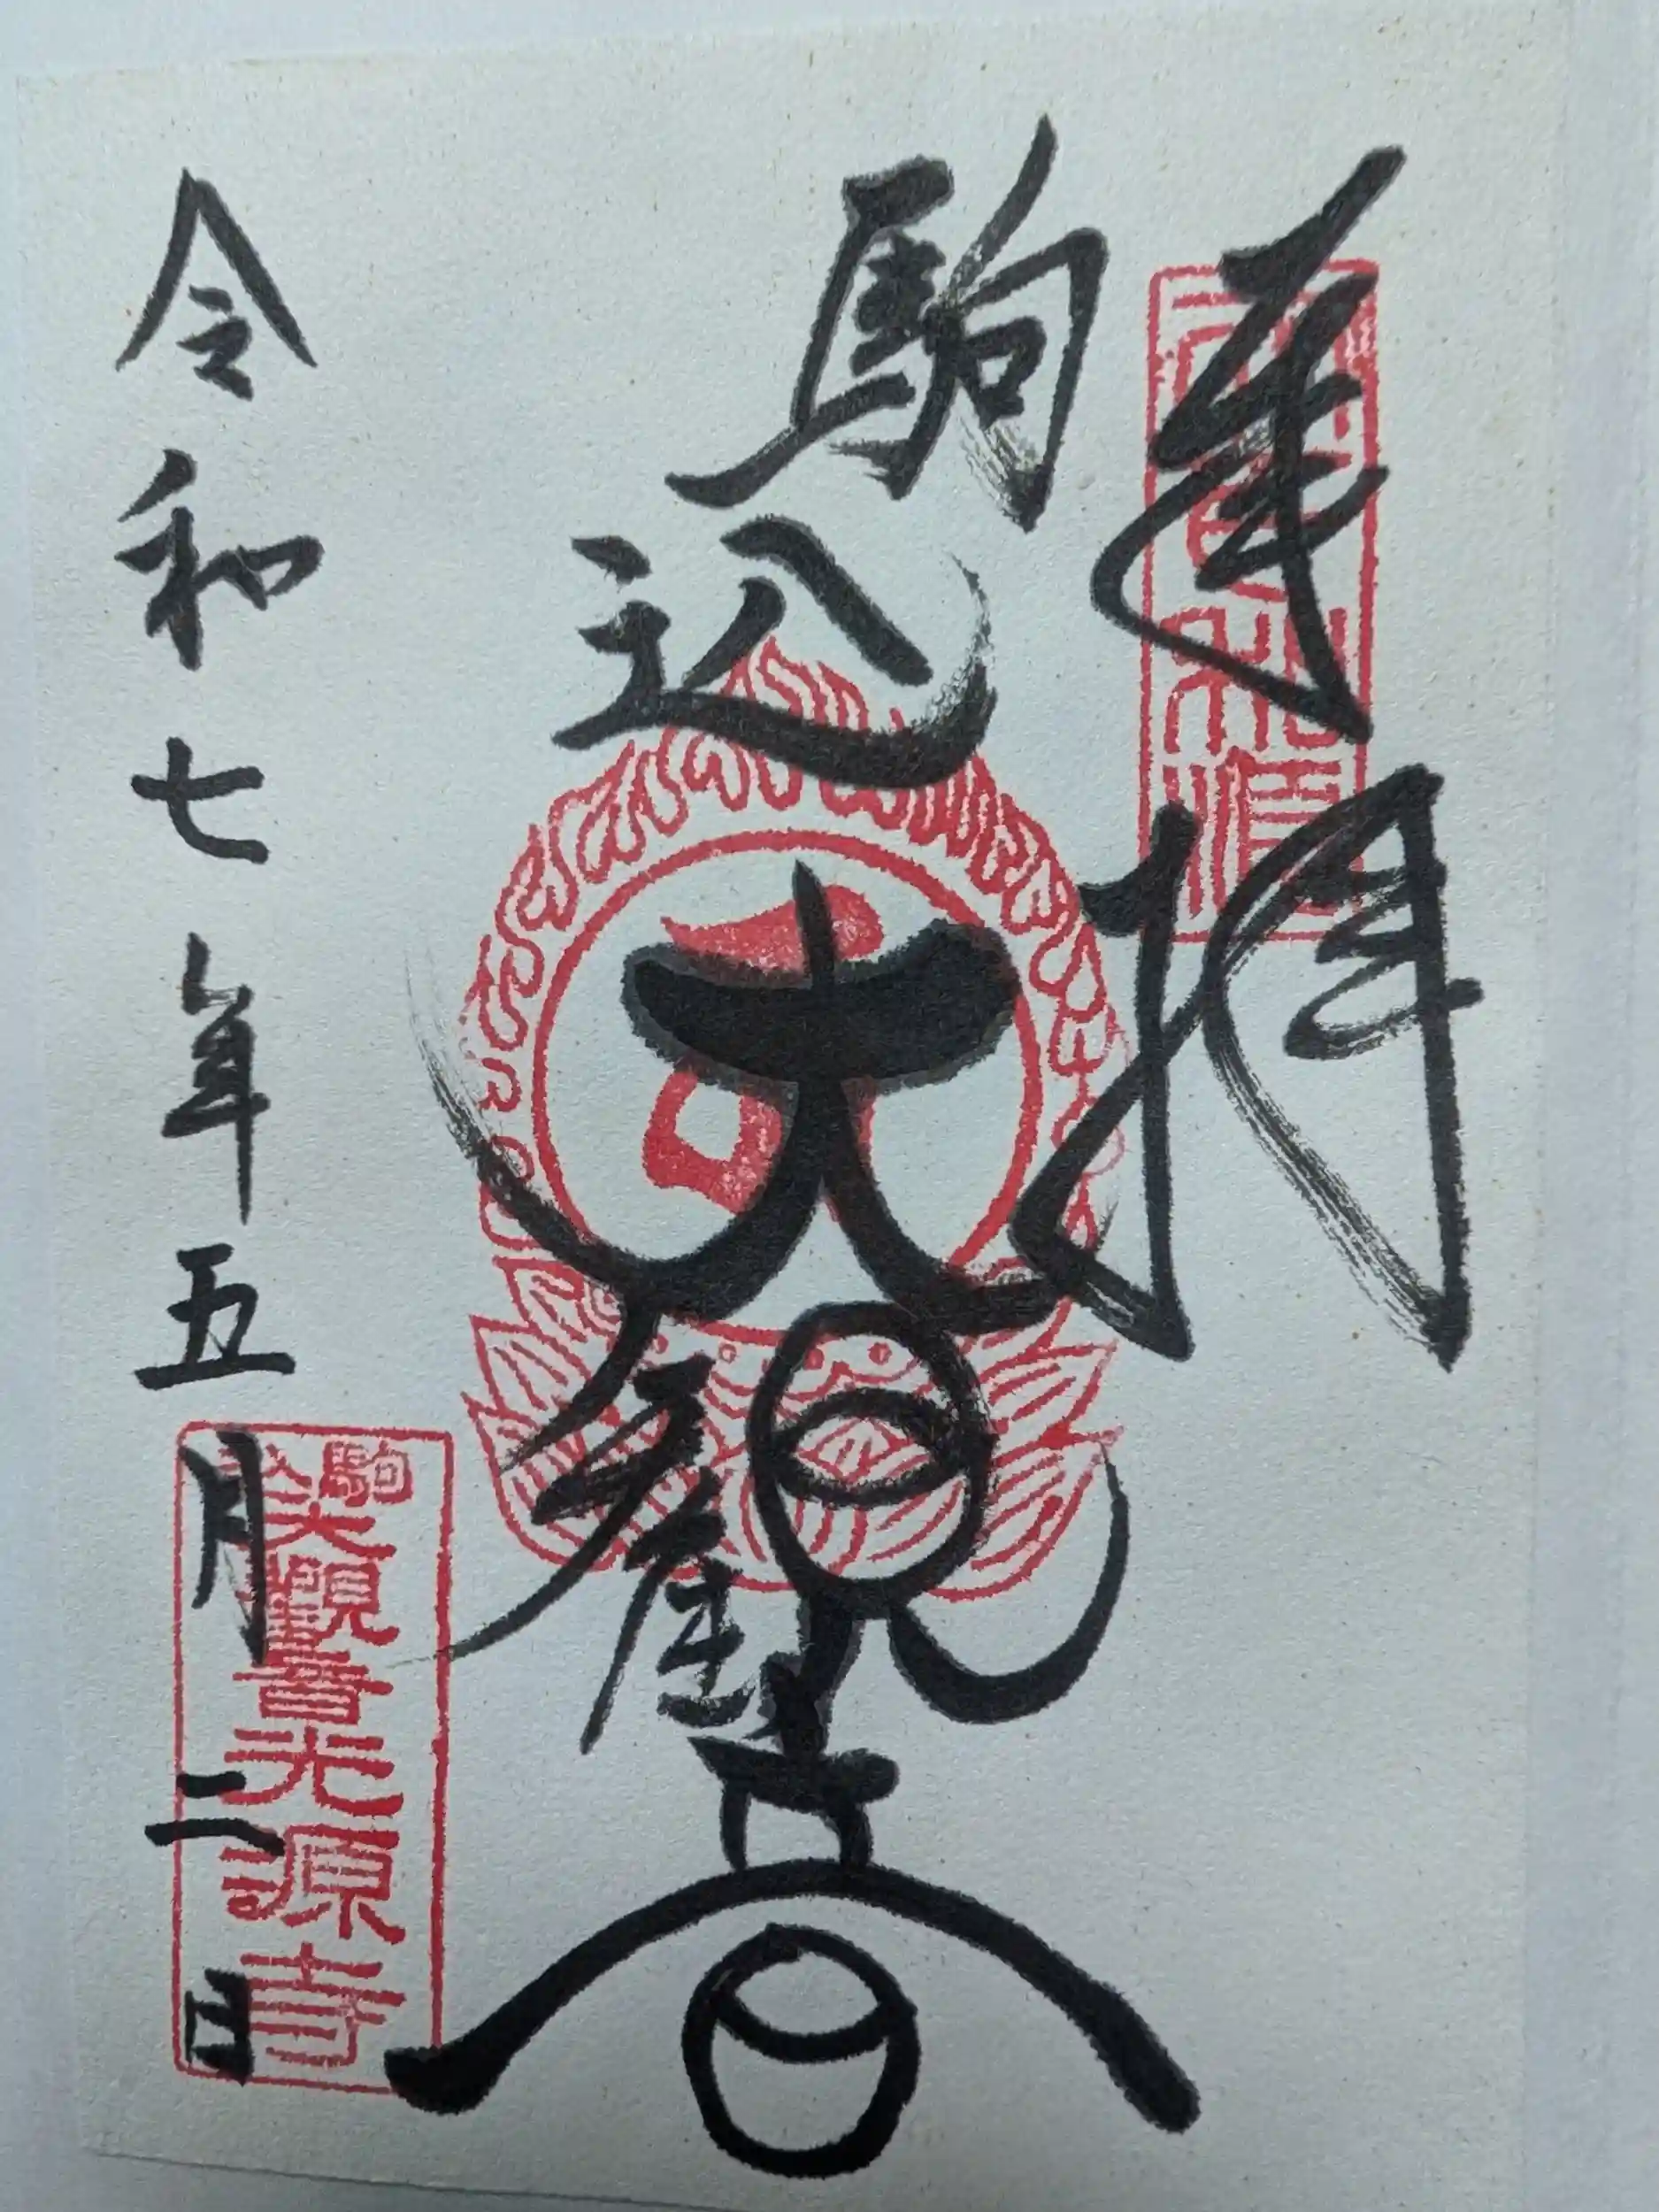 奉拝
駒込
大観音
令和七年五月二日
駒込
大観音光源寺